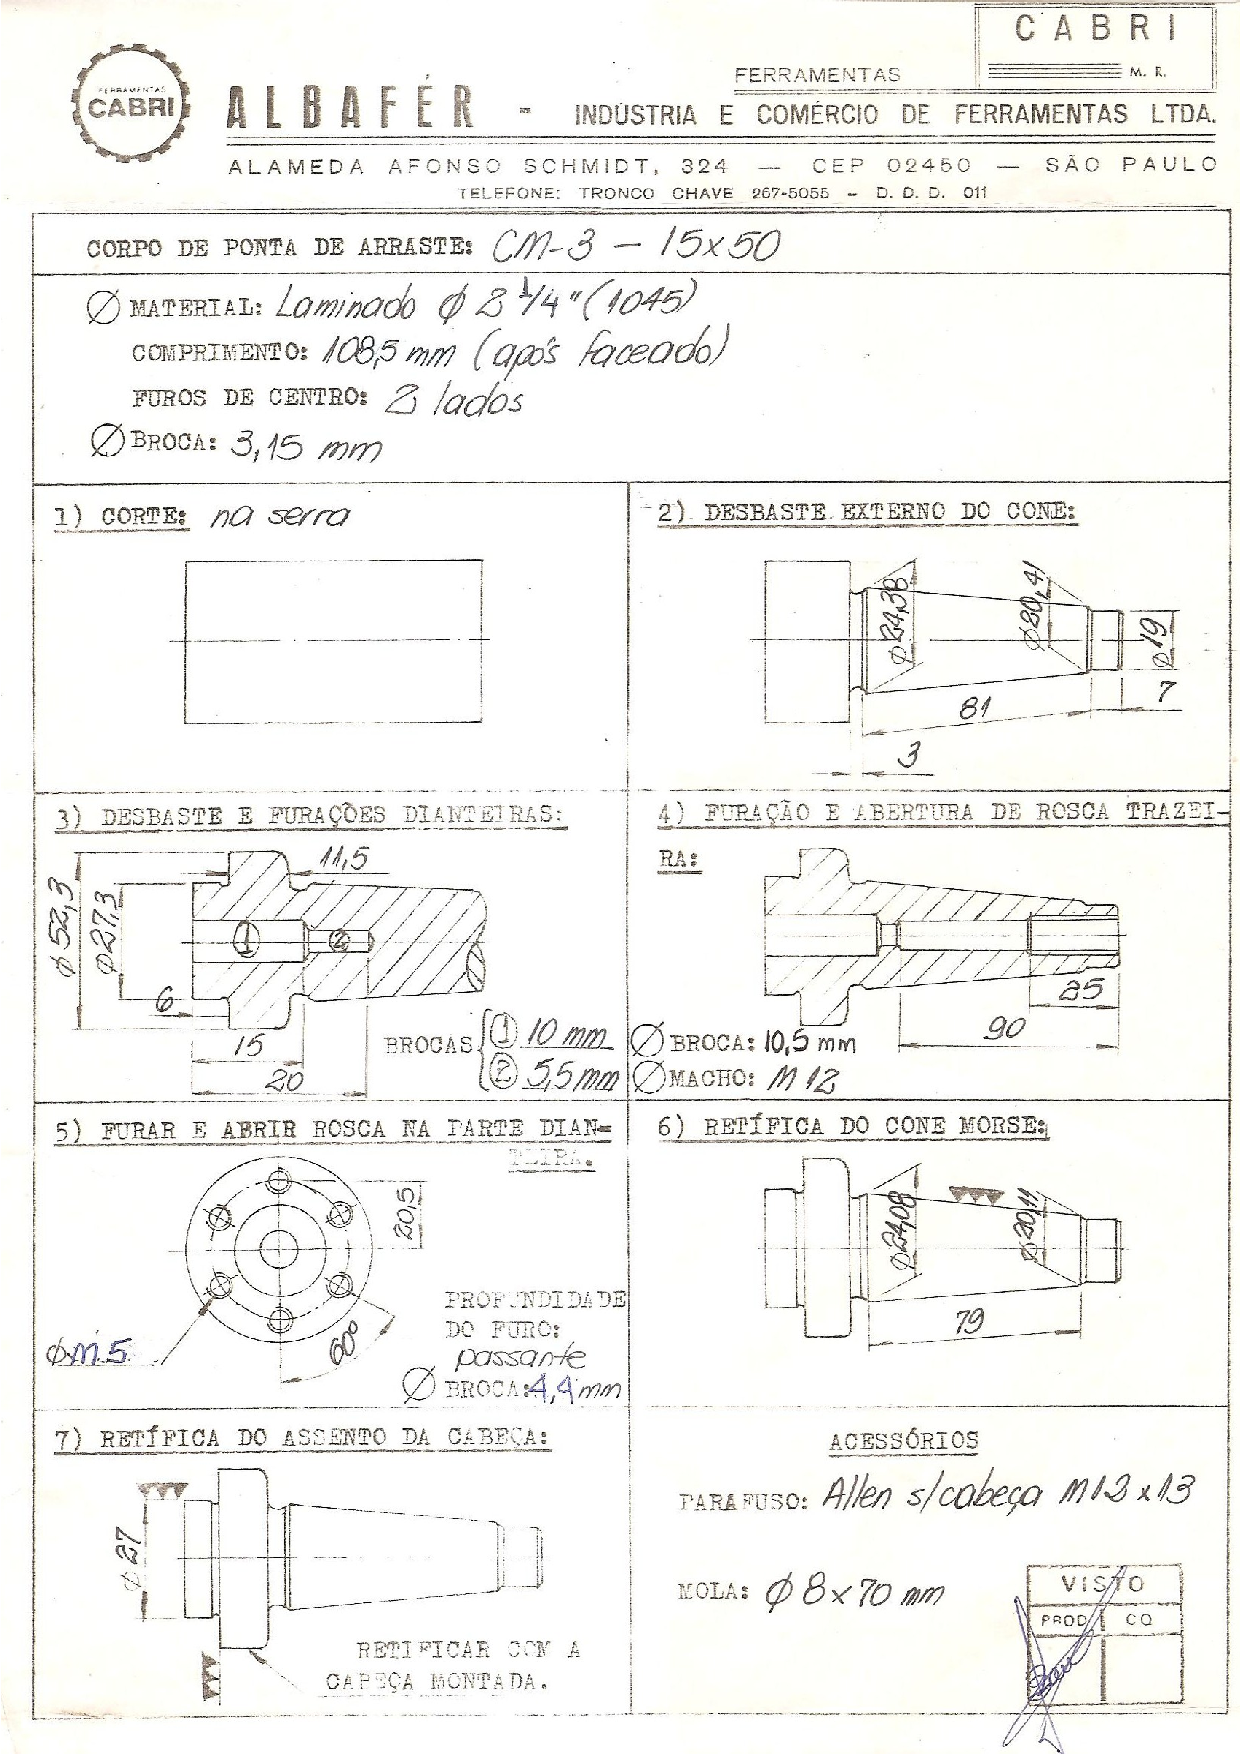 CABRI
FERRAMENTAS
M. R.
FERRAMENTAS
CABRI
ALBAFÉR - INDÚSTRIA E COMÉRCIO DE FERRAMENTAS LTDA.
ALAMEDA AFONSO SCHMIDT, 324 — CEP 02450 — SÃO PAULO
TELEFONE: TRONCO CHAVE 267-5055 - D. D. D. 011
CORPO DE PONTA DE ARRASTE: CM-3 - 15x50
Ø MATERIAL: Laminado ϕ 2 1/4" (1045)
COMPRIMENTO: 108,5 mm (após faceado)
FUROS DE CENTRO: 2 lados
Ø BROCA: 3,15 mm
1) CORTE: na serra
2) DESBASTE EXTERNO DO CONE:
ϕ24,38
ϕ20,41
ϕ19
81
7
3
3) DESBASTE E FURAÇÕES DIANTEIRAS:
11,5
ϕ52,3
ϕ27,3
1
2
6
15
20
BROCAS { 1 10 mm
2 5,5 mm
4) FURAÇÃO E ABERTURA DE ROSCA TRAZEI-
RA:
25
90
Ø BROCA: 10,5 mm
Ø MACHO: M 12
5) FURAR E ABRIR ROSCA NA PARTE DIAN=
TEIRA.
20,5
60°
ϕ M.5
PROFUNDIDADE
DO FURO:
passante
Ø BROCA: 4,4 mm
6) RETÍFICA DO CONE MORSE:
ϕ24,08
ϕ20,11
79
7) RETÍFICA DO ASSENTO DA CABEÇA:
ϕ 27
RETIFICAR COM A
CABEÇA MONTADA.
ACESSÓRIOS
PARAFUSO: Allen s/cabeça M12 x 13
MOLA: ϕ 8 x 70 mm
VISTO
PROD. CQ